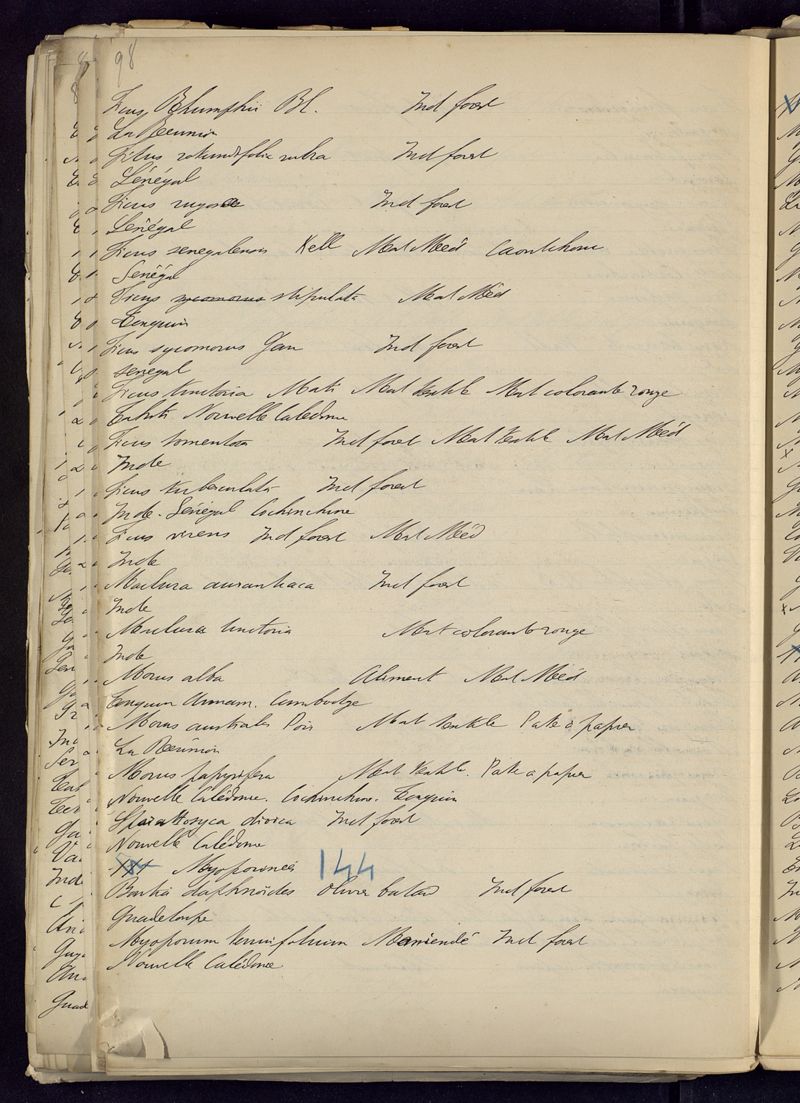 98
Ficus Rhumphii Bl. Ind forest
La Réunion
Ficus rotundifolia rubra Ind forest
Sénégal
Ficus rugosa Ind forest
Sénégal
Ficus senegalensis Mat Méd Caoutchouc
Sénégal
Ficus sycomorus stipulata Mat Méd
Tonquin
Ficus sycomorus Ind forest
Sénégal
Ficus tinctoria Mati Mat textile Mat colorante rouge
Tahiti Nouvelle Calédonie
Ficus tomentosa Ind forest Mat textile Mat Méd
Inde
Ficus tuberculata Ind forest
Inde. Sénégal Cochinchine
Ficus virens Ind forest Mat Méd
Inde
Maclura aurantiaca Ind forest
Inde
Maclura tinctoria Mat colorante rouge
Inde
Morus alba Aliment Mat Méd
Tonquin Annam. Cambodge
Morus australis Poir Mat textile Pate à papier
La Réunion
Morus papyrifera Mat textile. Pate a papier
Nouvelle Calédonie. Cochinchine. Tonquin
Sparattosyca dioica Ind forest
Nouvelle Calédonie
Myoporinées 144
Bontia daphnoides olivier batard Ind forest
Guadeloupe
Myoporum tenuifolium Ind forest
Nouvelle Calédonie